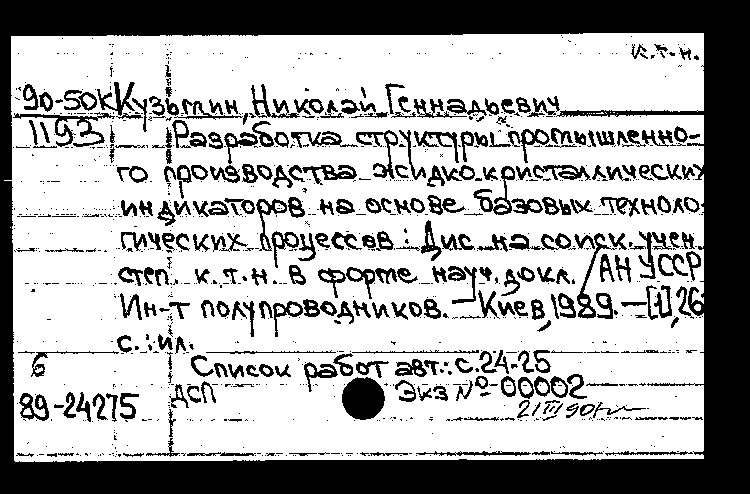 к.т.н.
90-50К Кузьмин, Николай Геннадьевич
1193 Разработка структуры промышленно-
го производства жидкокристаллических
индикаторов на основе базовых техноло-
гических процессов : Дис. на соиск. учен.
степ. к.т.н. в форме науч. докл. / АН УССР
Ин-т полупроводников. — Киев, 1989. — [1], 26
с. : ил.
6 Список работ авт.: с. 24-25
89-24275 ДСП Экз № 00002
21 III 90г